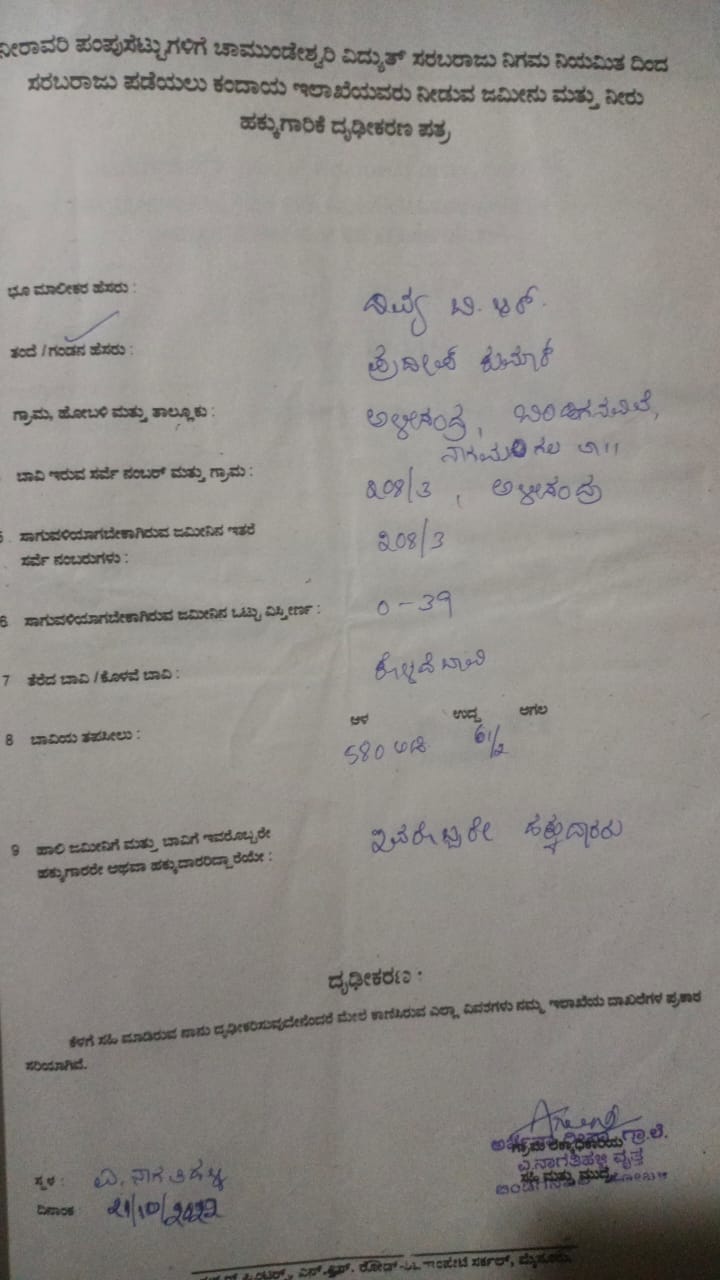 ನೀರಾವರಿ ಪಂಪುಸೆಟ್ಟುಗಳಿಗೆ ಚಾಮುಂಡೇಶ್ವರಿ ವಿದ್ಯುತ್ ಸರಬರಾಜು ನಿಗಮ ನಿಯಮಿತ ದಿಂದ
ಸರಬರಾಜು ಪಡೆಯಲು ಕಂದಾಯ ಇಲಾಖೆಯವರು ನೀಡುವ ಜಮೀನು ಮತ್ತು ನೀರು
ಹಕ್ಕುಗಾರಿಕೆ ದೃಢೀಕರಣ ಪತ್ರ
ಭೂ ಮಾಲೀಕರ ಹೆಸರು : ದಿವ್ಯ ಬಿ. ಆರ್.
ತಂದೆ / ಗಂಡನ ಹೆಸರು : ಪ್ರದೀಪ್ ಕುಮಾರ್
ಗ್ರಾಮ, ಹೋಬಳಿ ಮತ್ತು ತಾಲ್ಲೂಕು : ಅಳೀಸಂದ್ರ, ಬಿಂಡಿಗನವಿಲೆ,
ನಾಗಮಂಗಲ ತಾ||
ಬಾವಿ ಇರುವ ಸರ್ವೆ ನಂಬರ್ ಮತ್ತು ಗ್ರಾಮ : 208/3 , ಅಳೀಸಂದ್ರ
5 . ಸಾಗುವಳಿಯಾಗಬೇಕಾಗಿರುವ ಜಮೀನಿನ ಇತರೆ
ಸರ್ವೆ ನಂಬರುಗಳು : 208/3
6 ಸಾಗುವಳಿಯಾಗಬೇಕಾಗಿರುವ ಜಮೀನಿನ ಒಟ್ಟು ವಿಸ್ತೀರ್ಣ : 0-39
7 ತೆರೆದ ಬಾವಿ / ಕೊಳವೆ ಬಾವಿ : ಕೊಳವೆ ಬಾವಿ
ಆಳ ಉದ್ದ ಅಗಲ
8 ಬಾವಿಯ ತಪಸೀಲು : 580 ಅಡಿ 6 1/2
9 ಹಾಲಿ ಜಮೀನಿಗೆ ಮತ್ತು ಬಾವಿಗೆ ಇವರೊಬ್ಬರೇ
ಹಕ್ಕುಗಾರರೇ ಅಥವಾ ಹಕ್ಕುದಾರರಿದ್ದಾರೆಯೇ : ಇವರೊಬ್ಬರೇ ಹಕ್ಕುದಾರರು
ದೃಢೀಕರಣ :
ಕೆಳಗೆ ಸಹಿ ಮಾಡಿರುವ ನಾನು ದೃಢೀಕರಿಸುವುದೇನೆಂದರೆ ಮೇಲೆ ಕಾಣಿಸಿರುವ ಎಲ್ಲಾ ವಿವರಗಳು ನಮ್ಮ ಇಲಾಖೆಯ ದಾಖಲೆಗಳ ಪ್ರಕಾರ
ಸರಿಯಾಗಿದೆ.
ಗ್ರಾ.ಲೆ.
ಗ್ರಾಮ ಲೆಕ್ಕಾಧಿಕಾರಿಯ
ಎ.ನಾಗತಿಹಳ್ಳಿ ವೃತ್ತ
ಸಹಿ ಮತ್ತು ಮುದ್ರೆ
ಸ್ಥಳ : ಎ. ನಾಗತಿಹಳ್ಳಿ
ದಿನಾಂಕ : 21/10/2022
ಸರ್ಕಲ್, ಮೈಸೂರು.